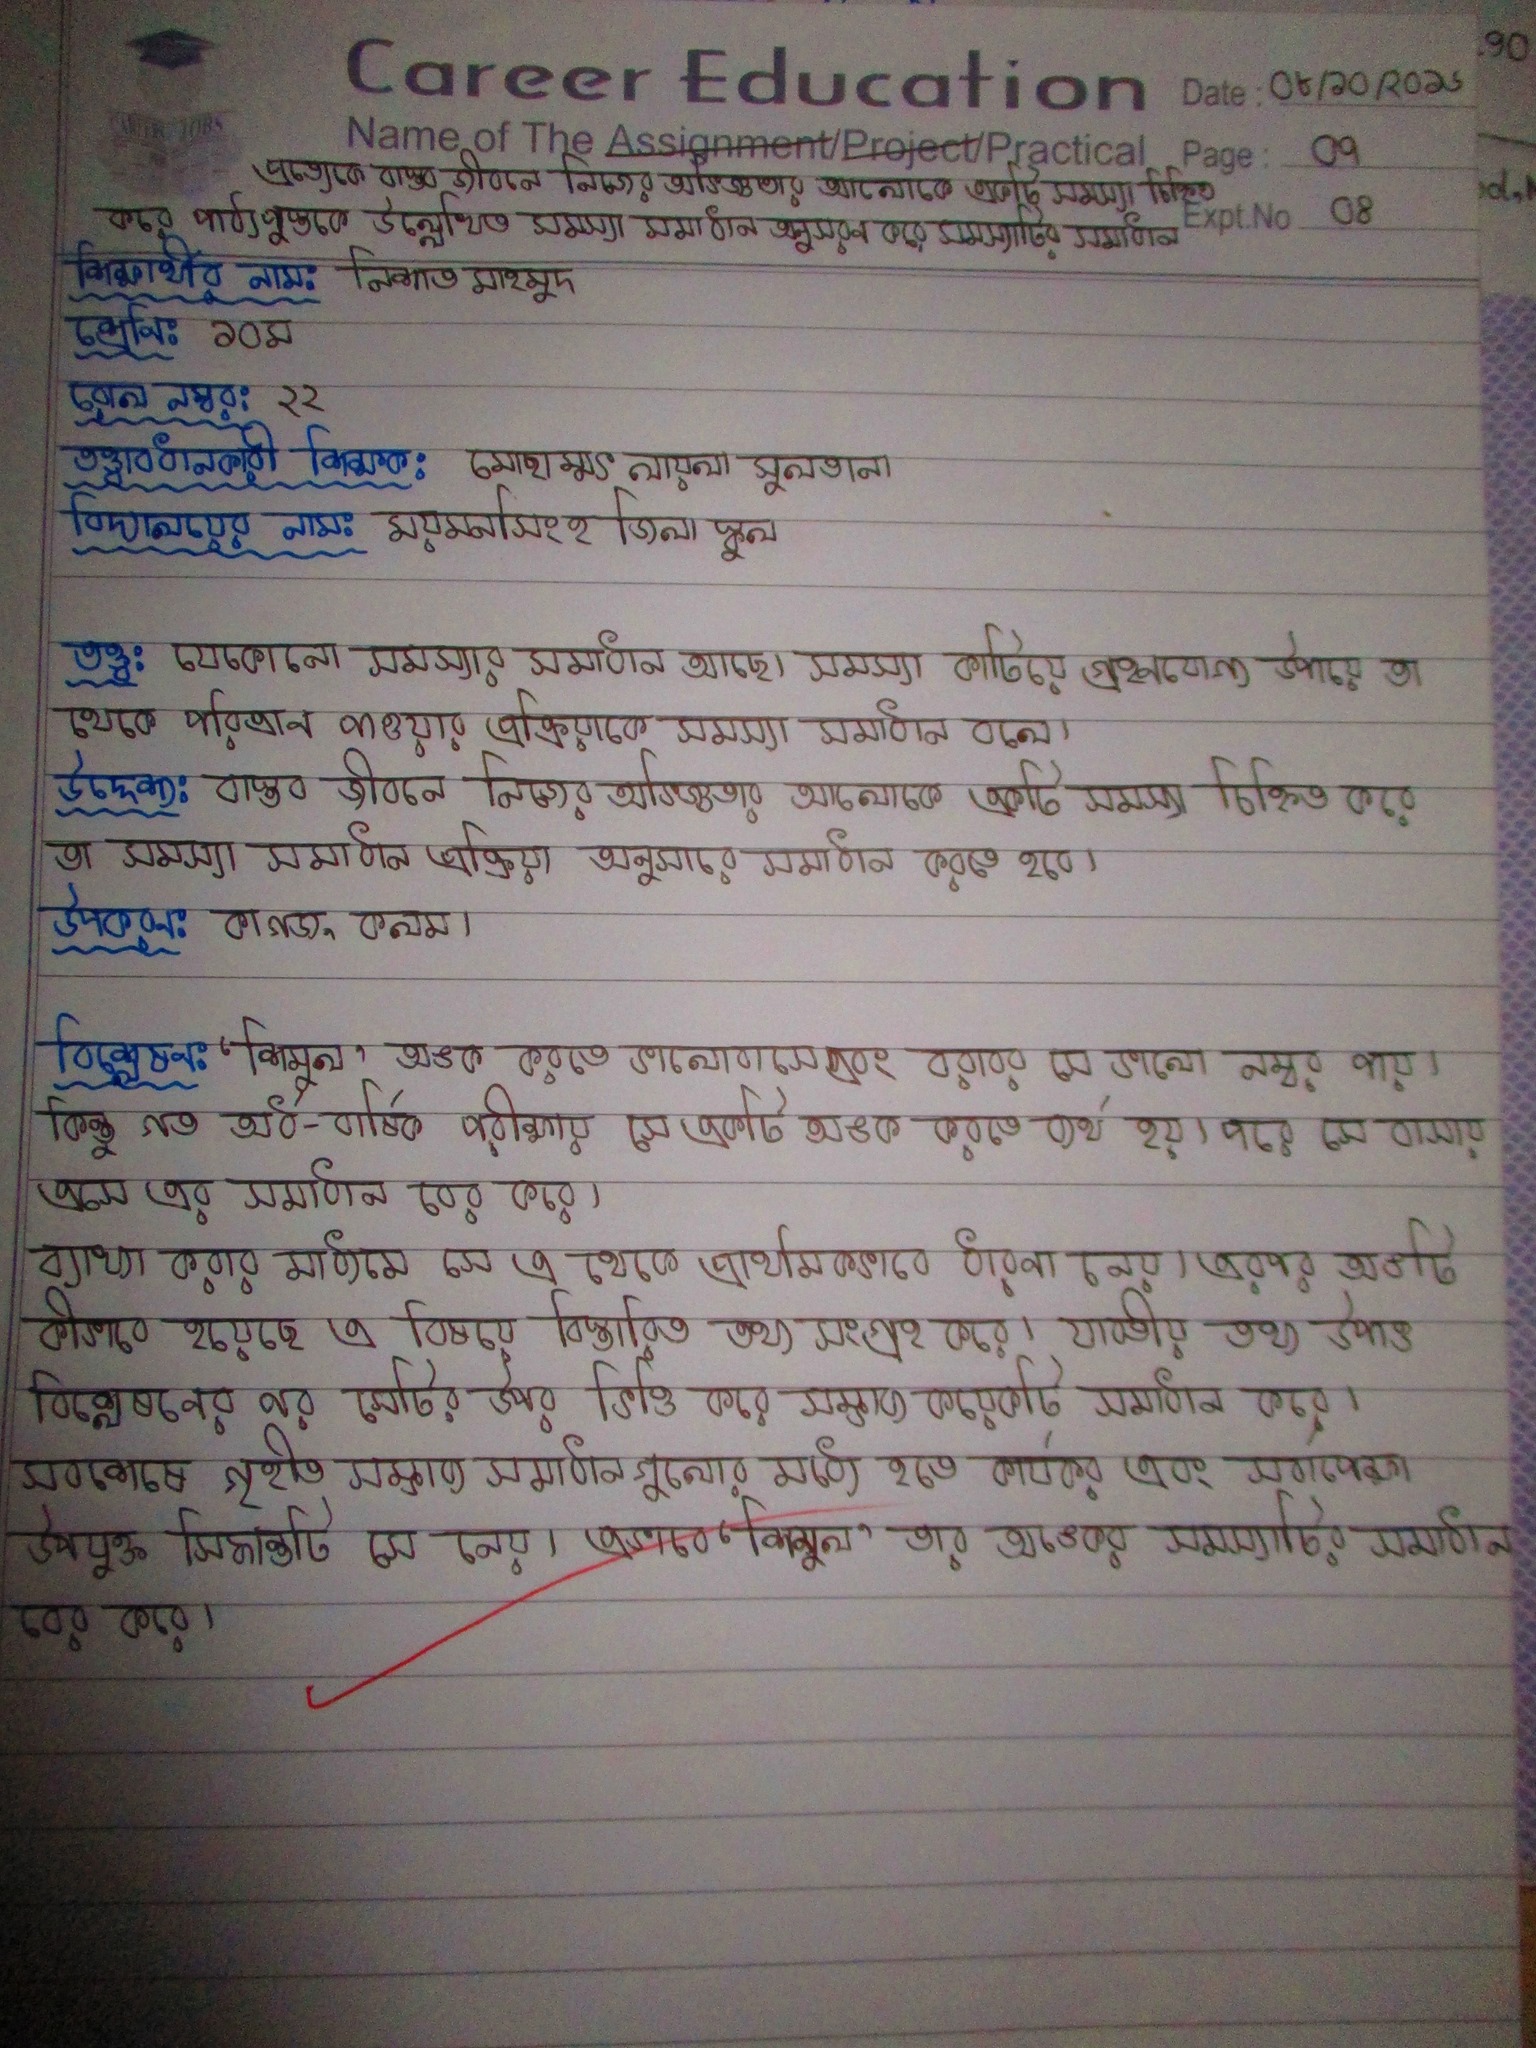 Career Education
Date: 08/10/2025
Name of The Assignment/Project/Practical
Page: 09
প্রত্যেকে বাস্তব জীবনে নিজের অভিজ্ঞতার আলোকে একটি সমস্যা চিহ্নিত
করে পাঠ্যপুস্তকে উল্লেখিত সমস্যা সমাধান অনুসরণ করে সমস্যাটির সমাধান
Expt.No 08
শিক্ষার্থীর নাম: নিশাত মাহমুদ
শ্রেণি: ১০ম
রোল নম্বর: ২২
তত্ত্বাবধানকারী শিক্ষক: মোছাম্মৎ লায়লা সুলতানা
বিদ্যালয়ের নাম: ময়মনসিংহ জিলা স্কুল
তত্ত্ব: যেকোনো সমস্যার সমাধান আছে। সমস্যা কাটিয়ে গ্রহণযোগ্য উপায়ে তা
থেকে পরিত্রান পাওয়ার প্রক্রিয়াকে সমস্যা সমাধান বলে।
উদ্দেশ্য: বাস্তব জীবনে নিজের অভিজ্ঞতার আলোকে একটি সমস্যা চিহ্নিত করে
তা সমস্যা সমাধান প্রক্রিয়া অনুসারে সমাধান করতে হবে।
উপকরণ: কাগজ, কলম।
বিশ্লেষণ: 'শিমুল' অঙক করতে ভালোবাসে এবং বরাবর সে ভালো নম্বর পায়।
কিন্তু গত অর্ধ-বার্ষিক পরীক্ষায় সে একটি অঙক করতে ব্যর্থ হয়। পরে সে বাসায়
এসে এর সমাধান বের করে।
ব্যাখ্যা করার মাধ্যমে সে এ থেকে প্রাথমিকভাবে ধারণা নেয়। এরপর অঙকটি
কীভাবে হয়েছে এ বিষয়ে বিস্তারিত তথ্য সংগ্রহ করে। যাবতীয় তথ্য উপাত্ত
বিশ্লেষণের পর সেটির উপর ভিত্তি করে সম্ভাব্য কয়েকটি সমাধান করে।
সবশেষে গৃহীত সম্ভাব্য সমাধানগুলোর মধ্যে হতে কার্যকর এবং সর্বাপেক্ষা
উপযুক্ত সিদ্ধান্তটি সে নেয়। এভাবে 'শিমুল' তার অঙকের সমস্যাটির সমাধান
বের করে।